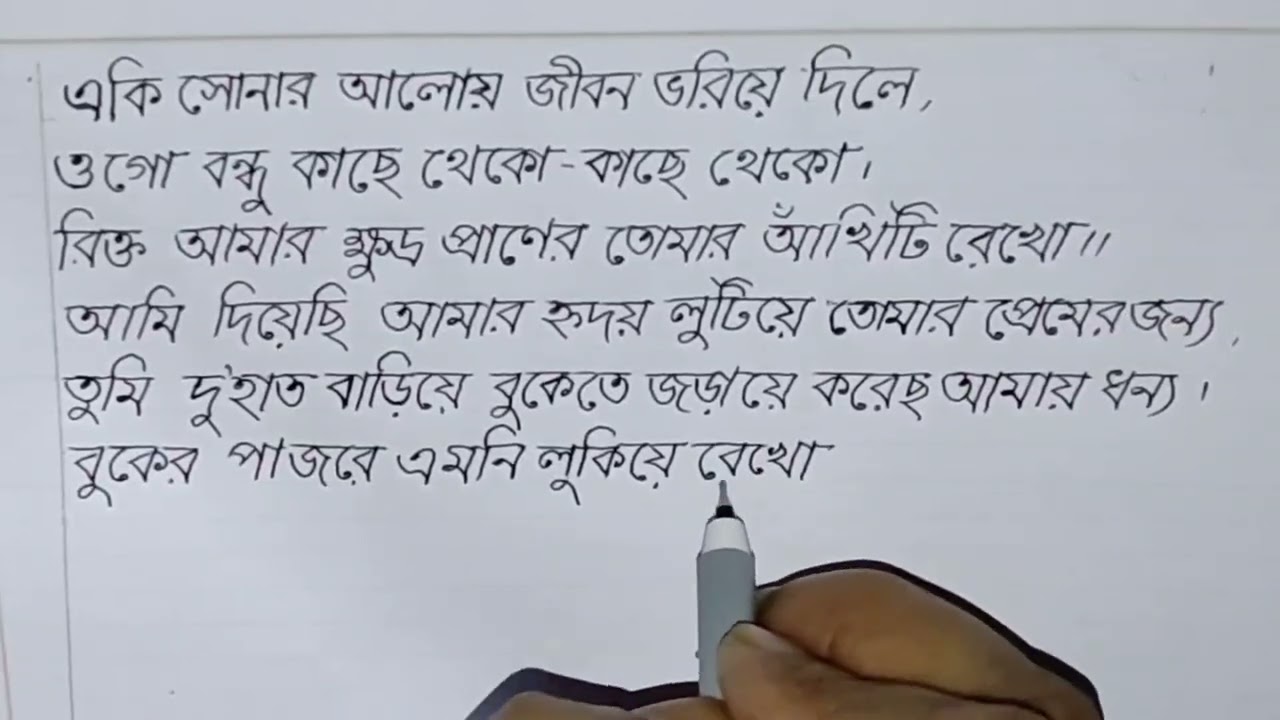 একি সোনার আলোয় জীবন ভরিয়ে দিলে,
ওগো বন্ধু কাছে থেকো-কাছে থেকো।
রিক্ত আমার ক্ষুদ্র প্রাণের তোমার আঁখিটি রেখো।।
আমি দিয়েছি আমার হৃদয় লুটিয়ে তোমার প্রেমের জন্য,
তুমি দু'হাত বাড়িয়ে বুকেতে জড়ায়ে করেছ আমায় ধন্য।
বুকের পাজরে এমনি লুকিয়ে রেখো